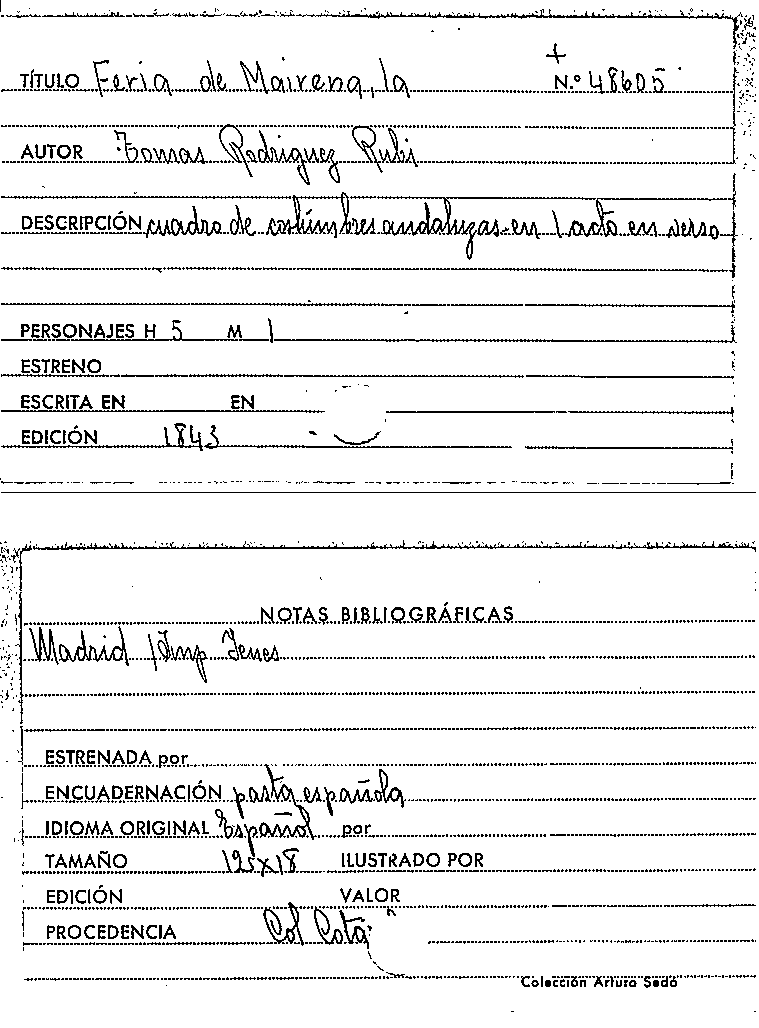 +
TÍTULO Feria de Mairena, la N.º 48605
AUTOR Tomas Rodriguez Rubi
DESCRIPCIÓN cuadro de costúmbres andaluzas en 1 acto en verso
PERSONAJES H 5 M 1
ESTRENO
ESCRITA EN EN
EDICIÓN 1843
NOTAS BIBLIOGRÁFICAS
Madrid / Imp Yenes
ESTRENADA por
ENCUADERNACIÓN pasta española
IDIOMA ORIGINAL Español por
TAMAÑO 125x18 ILUSTRADO POR
EDICIÓN VALOR
PROCEDENCIA Col Cota
Colección Arturo Sedó